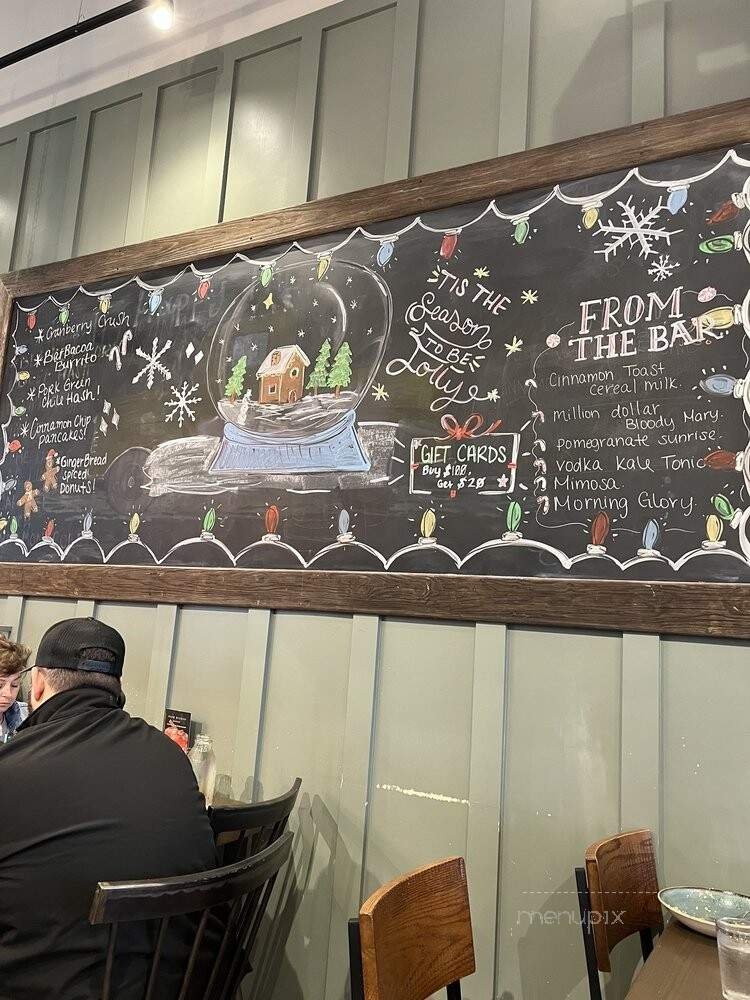 * Cranberry Crush
* BirBacoa
Burrito
* Pork Green
Chile Hash!
* Cinnamon Chip
pancakes!
* GingerBread
spiced
Donuts!
'TIS THE
Season
TO BE
Jolly
GIFT CARDS
Buy $100,
Get $20
FROM
THE BAR
Cinnamon Toast
cereal milk.
million dollar
Bloody Mary.
pomegranate sunrise.
vodka kale Tonic
Mimosa.
Morning Glory.
menupix